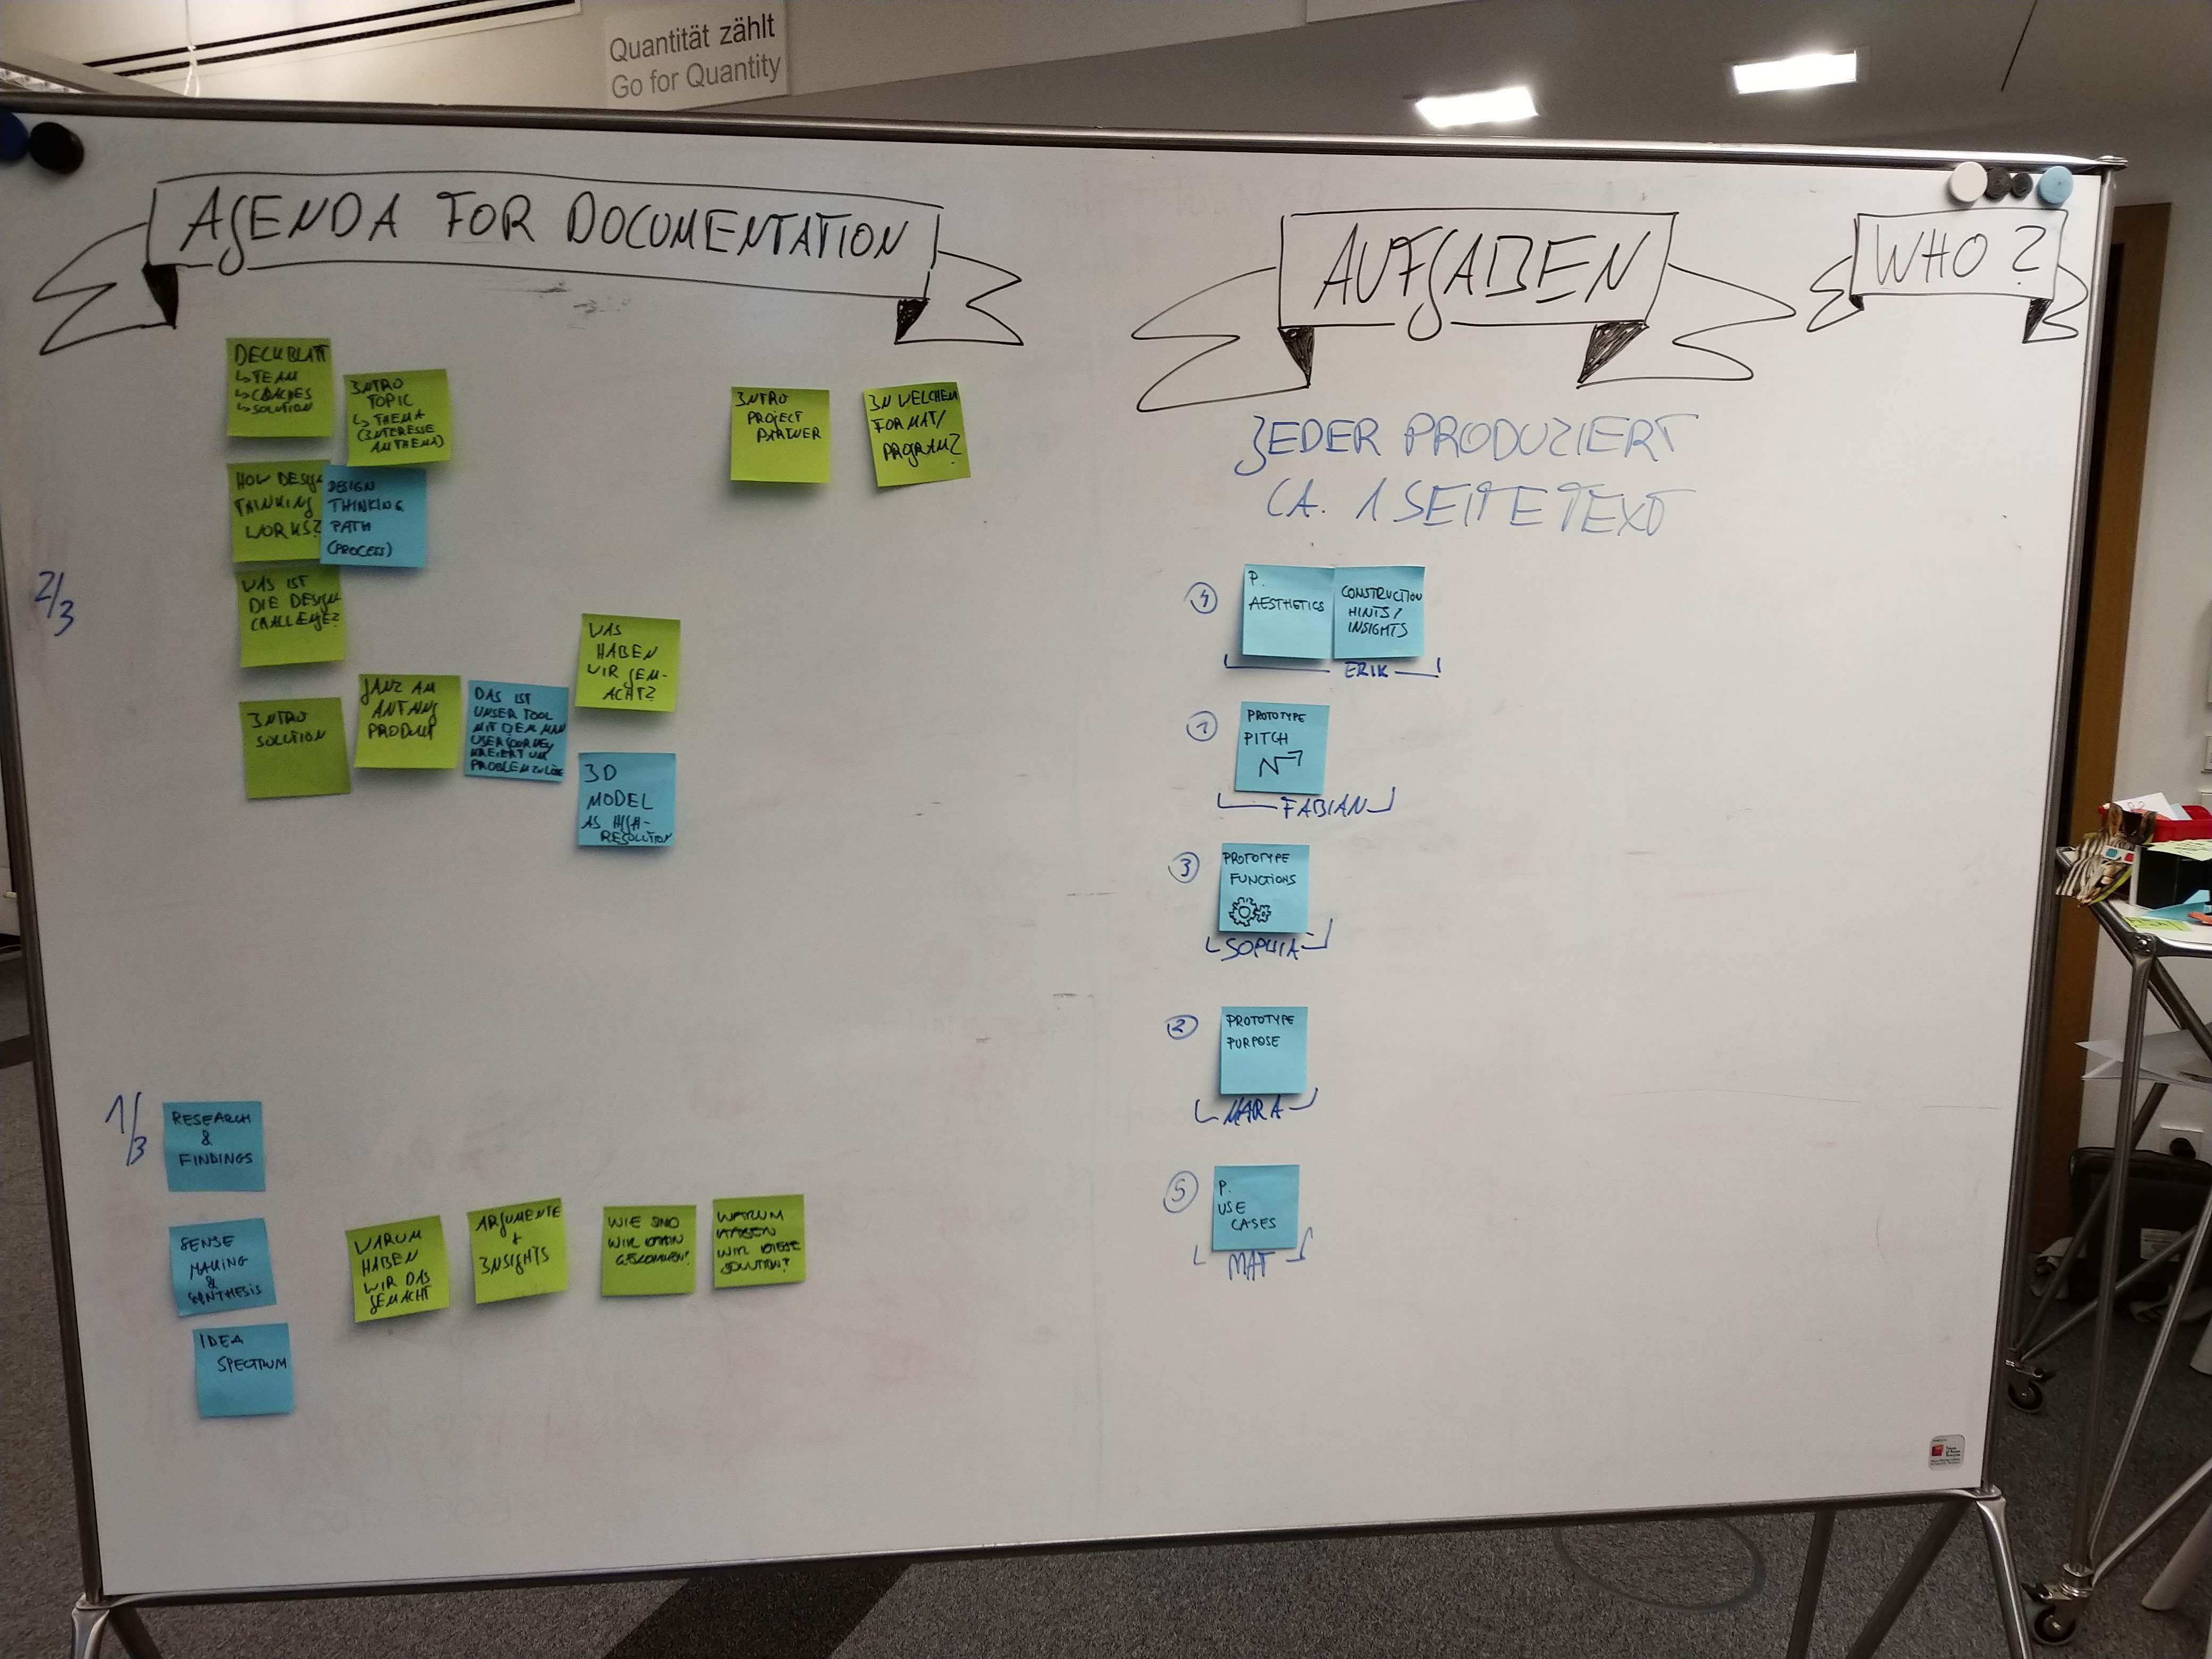 Quantität zählt
Go for Quantity
AGENDA FOR DOCUMENTATION
DECKBLATT
↳ TEAM
↳ COACHES
↳ SOLUTION
INTRO
TOPIC
↳ THEMA
(INTERESSE
AM THEMA)
INTRO
PROJECT
PARTNER
IN WELCHEM
FORMAT/
PROGRAM?
HOW DESIGN
THINKING
WORKS?
DESIGN
THINKING
PATH
(PROCESS)
2/3
WAS IST
DIE DESIGN
CHALLENGE?
WAS
HABEN
WIR GEM-
ACHT?
INTRO
SOLUTION
GANZ AM
ANFANG
PRODUKT
DAS IST
UNSER TOOL
MIT DEM MAN
USER JOURNEY
KREIERT UM
PROBLEM ZU LÖSEN
3D
MODEL
AS HIGH-
RESOLUTION
1/3
RESEARCH
&
FINDINGS
SENSE
MAKING
&
SYNTHESIS
WARUM
HABEN
WIR DAS
GEMACHT
ARGUMENTE
+
INSIGHTS
WIE SIND
WIR DAHIN
GEKOMMEN?
WARUM
HABEN
WIR DIESE
SOLUTION?
IDEA
SPECTRUM
AUFGABEN
JEDER PRODUZIERT
CA. 1 SEITE TEXT
4
P.
AESTHETICS
CONSTRUCTION
HINTS/
INSIGHTS
ERIK
1
PROTOTYPE
PITCH
FABIAN
3
PROTOTYPE
FUNCTIONS
SOPHIA
2
PROTOTYPE
PURPOSE
MARA
5
P.
USE
CASES
MAT
WHO?